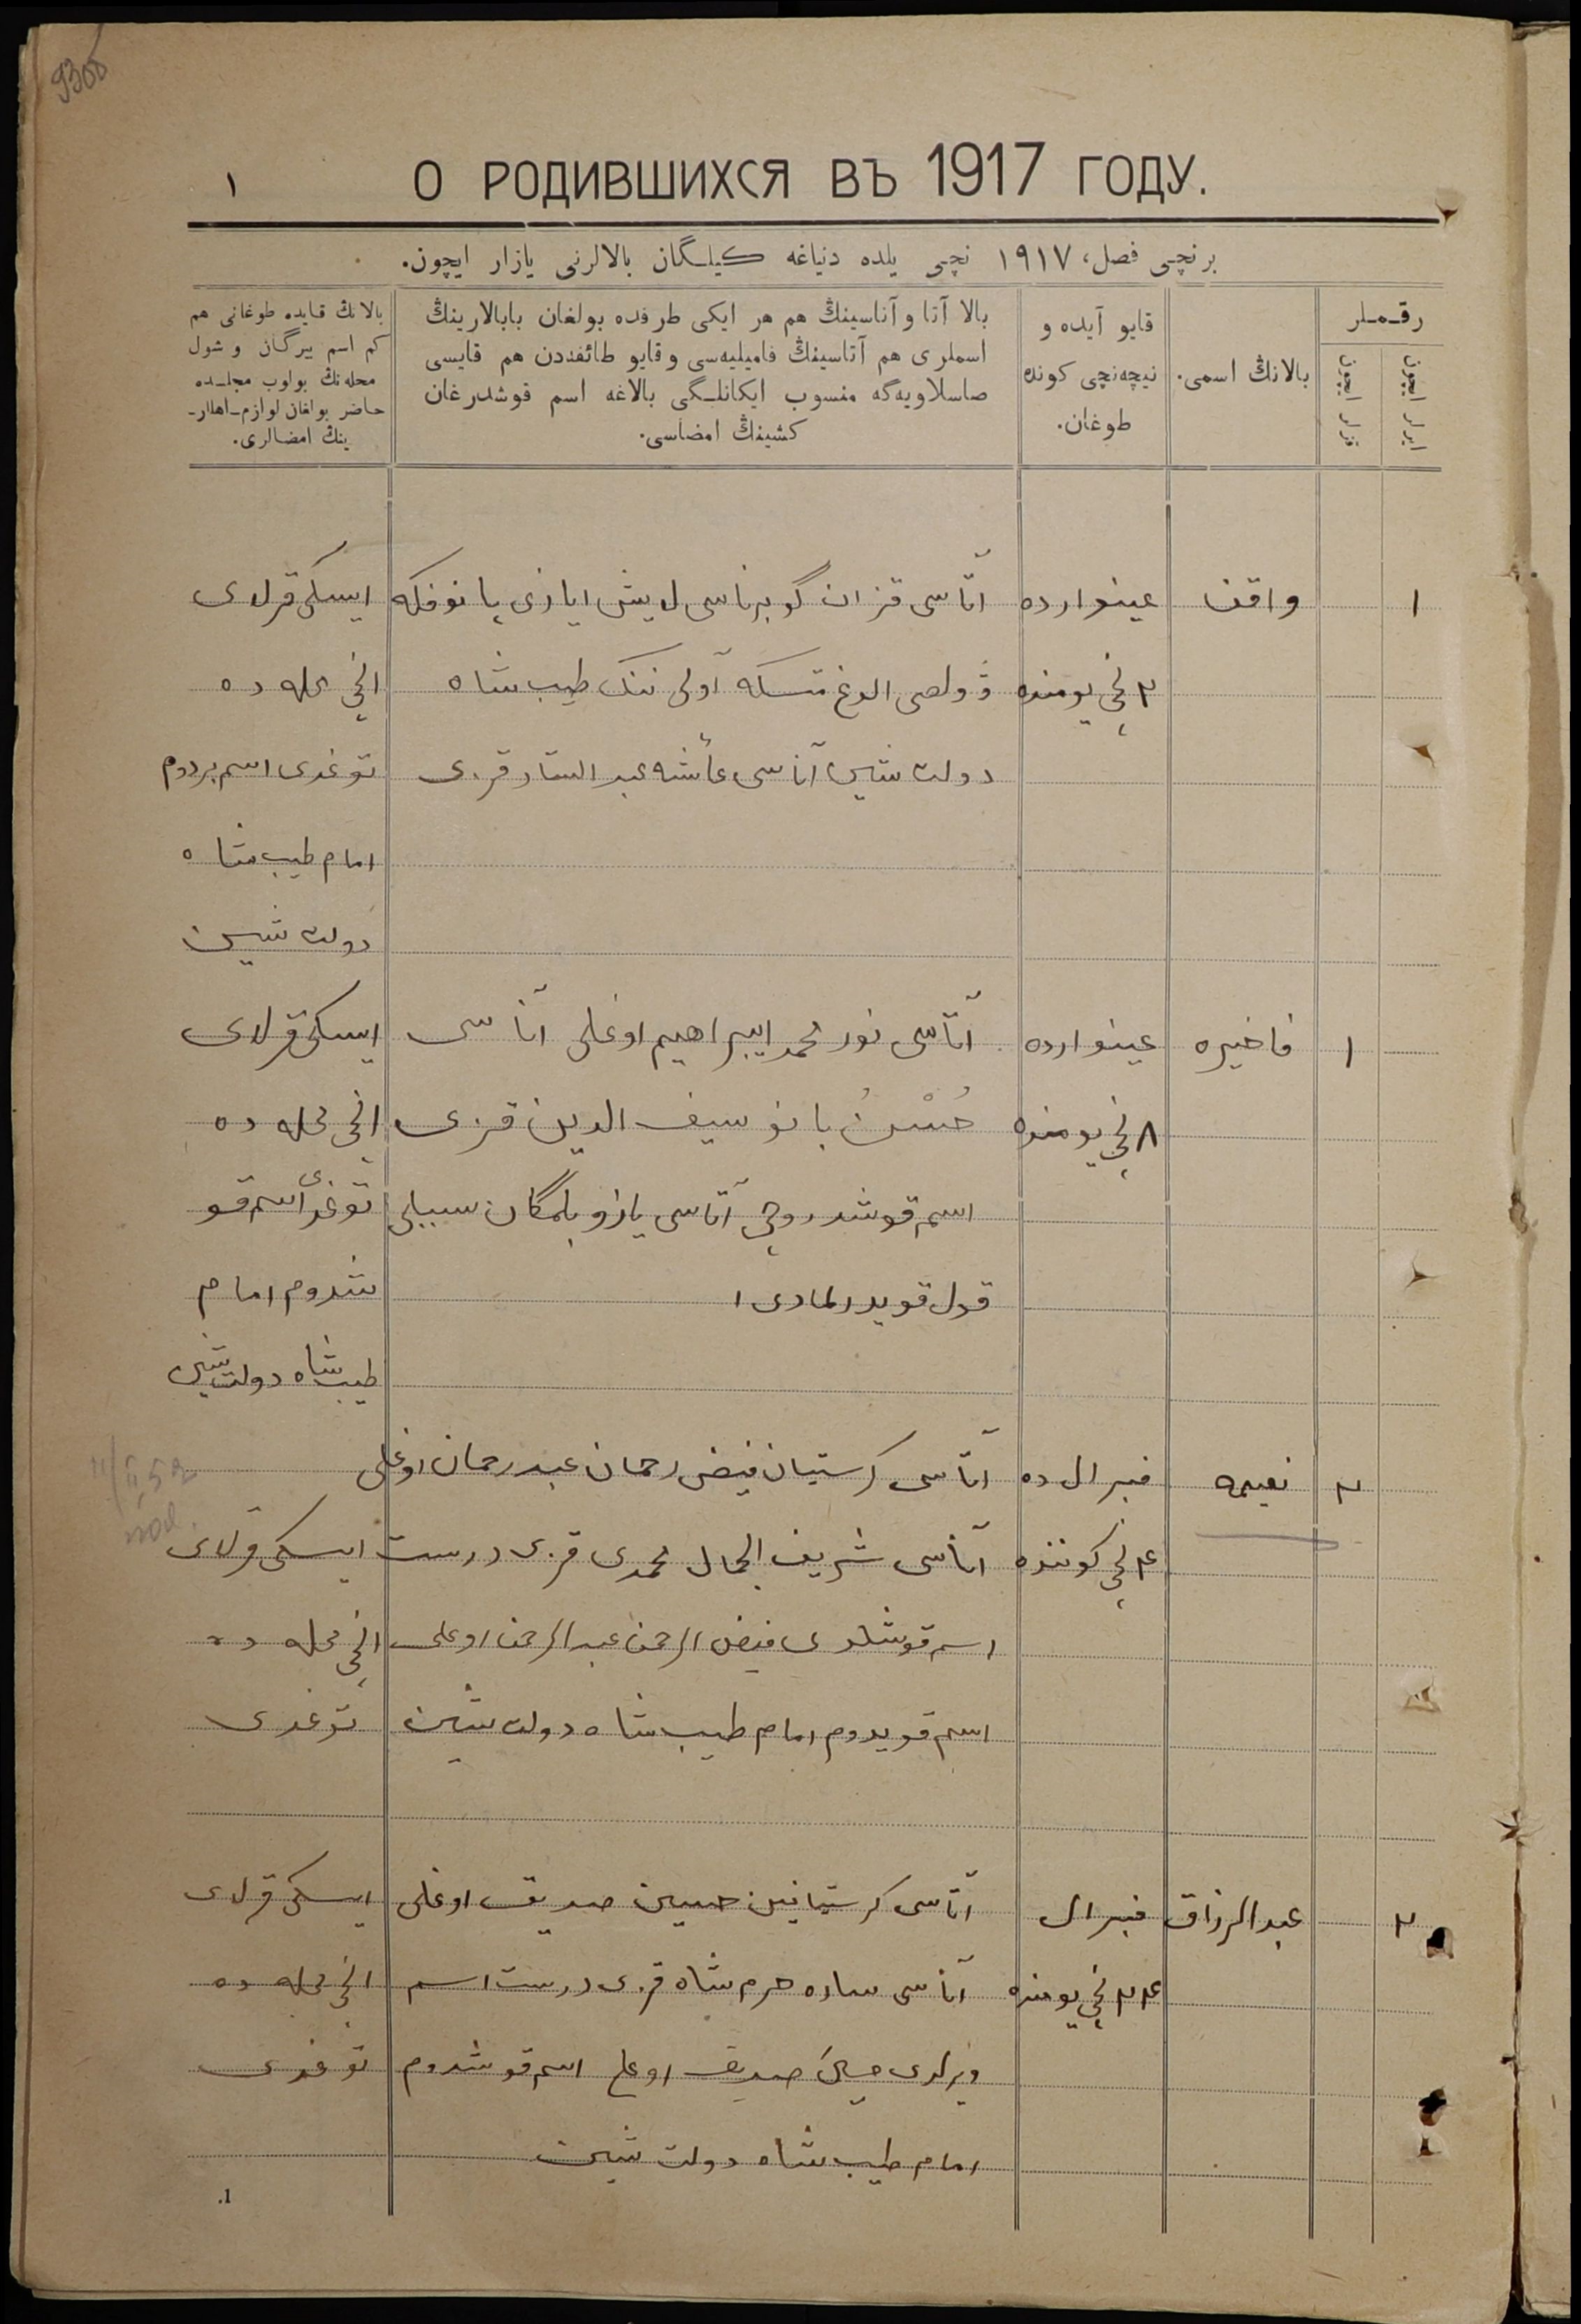 9300
١
О РОДИВШИХСЯ ВЪ 1917 ГОДУ.
برنچی فصل، ١٩١٧ نچی یلده دنیاغه کیلـگان بالالرنی یازار ایچون.
رقـملر
ایرلر ایچون
قزلر ایچون
بالانڭ اسمی.
قایو آیده و
نیچه‌نچی کونده
طوغان.
بالا آتا و آناسینڭ هم هر ایکی طرفده بولغان بابالارینڭ
اسملری هم آتاسینڭ فامیلیه‌سی و قایو طائفه‌دن هم قایسی
صاسلاویه‌گه منسوب ایکانلـگی بالاغه اسم قوشدرغان
کشینڭ امضاسی.
بالانڭ قایده طوغانی هم
کم اسم بیرگان و شول
محله‌نڭ بولوب مجلـده
حاضر بولغان لوازم-اهللر-
ینڭ امضالری.
١
واقف
عینوارده
٢ نچی یومنده
آتاسی قزان گوبرناسی لایش ایازی پانوفکه
ۋولصی الوغ متسکه آولی ننک طیب شاه
دولت شین آناسی عائشه عبد الستار قزی
ایسکی قرلای
انچی محله ده
توغدی اسم بردوم
امام طیب شاه
دولت شین
١
فاخیره
عینوارده
٨ نچی یومنده
آتاسی نور محمد ایبراهیم اوغلی آناسی
حُسْنُ بانو سیف الدین قزی
اسم قوشدروچی آتاسی یازو بلمگان سببلی
قول قویدرلمادی
ایسکی قرلای
انچی محله ده
توغدی اسم قو
شدوم امام
طیب شاه دولت شین
٢
نعیمه
فبرال ده
٤ نچی کوننده
آتاسی کرستیان فیض رحمان عبد رحمان اوغلی
آناسی شریف الجمال محمدی قزی درست
اسم قوشلدی فیض الرحمن عبد الرحمن اوغلی
اسم قویدوم امام طیب شاه دولت شین
ایسکی قرلای
انچی محله ده
توغدی
٢
عبد الرزاق
فبرال
٢٤ نچی یومنده
آتاسی کرستیانین حسین صدیق اوغلی
آناسی ساره حرم شاه قزی درست اسم
ویرلدی حسین صدیق اوغلی اسم قوشدوم
امام طیب شاه دولت شین
ایسکی قرلای
انچی محله ده
توغدی
1.